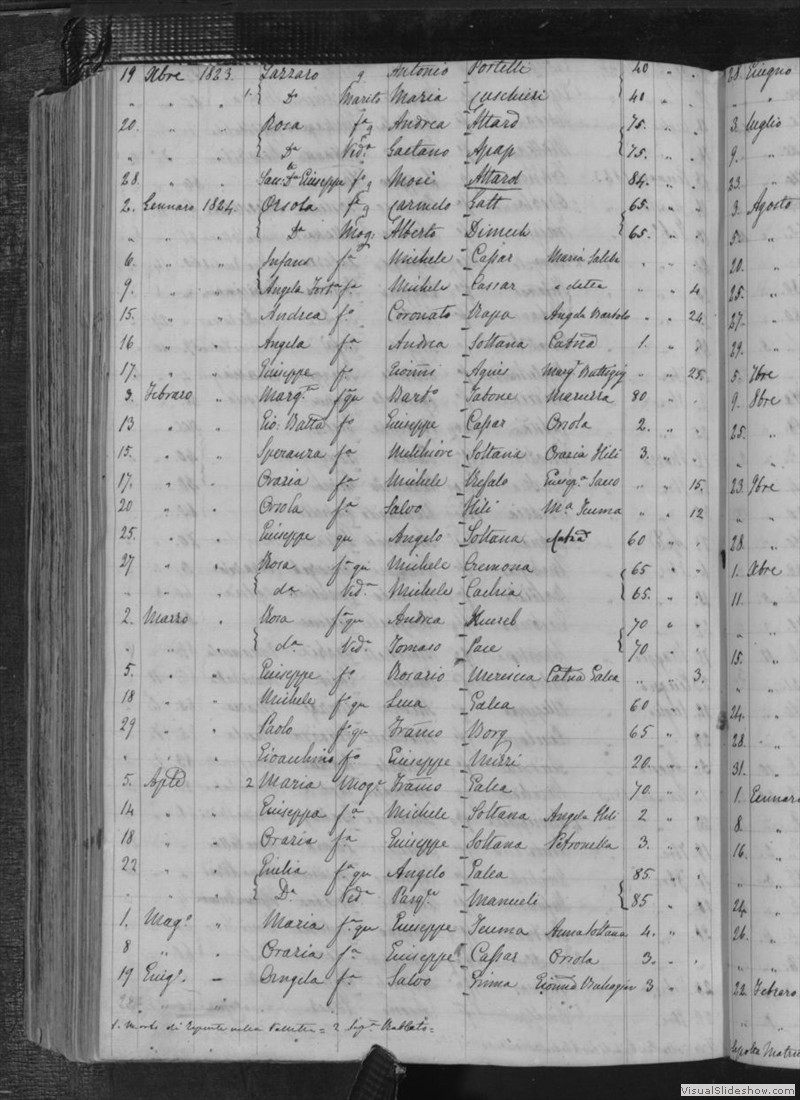 19 Xbre 1823. Lazzaro q Antonio Portelli 40 " "
" " " 1. Da Marito Maria Cuschieri 40 " "
20. " " Rosa fa q Andrea Attard 75. " "
" " " Da Vida Gaetano Apap 75. " "
28. " " Giuseppe fo q Mosi Attard 84. " "
2. Gennaro 1824. Orsola fa q Carmelo Gatt 65. " "
" " " Da Mog. Alberto Dimech 65. " "
6. " " Infans fa Michele Cassar Maria Saliba " " "
9. " " Angela fa Michele Cassar detta " " 4.
15. " " Andrea fo Coronato Rapa Angela Bartolo " " 24.
16 " " Angela fa Andrea Soltana Catna 1. " "
17. " " Giuseppe fo Gionni Agius Marga Buttigieg " " 25.
3. Febraro " Marga fa qu Barto Tabone Maruzza 80 " "
13 " " Gio: Batta fo Giuseppe Cassar Orsola 2. " "
15. " " Speranza fa Melchiore Soltana Grazia Hili 3. " "
17. " " Grazia fa Michele Refalo " " 15.
20 " " Orsola fa Salvo Hili Ma Teuma " " 12
25. " " Giuseppe qu Angelo Soltana Catna 60 " "
27 " " Rosa fa qu Michele Cremona 65 " "
" " " da Vida Michele Cachia 65. " "
2. Marzo " Rosa fa qu Andrea Xuereb 70 " "
" " " da Vida Tomaso Pace 70 " "
5. " " Giuseppe fo Rosario Mercieca Catna Galea " " 3.
18 " " Michele fo qu Luca Galea 60 " "
29 " " Paolo fo qu Franco Borg 65 " "
" " " Gioachino fo Giuseppe Mizzi 20. " "
5. Aple " 2 Maria Moge Franco Galea 70. " "
14 " " Giuseppa fa Michele Soltana Angela Hili 2 " "
18 " " Grazia fa Giuseppe Soltana Petronella 3. " "
22 " " Giulia fa qu Angelo Galea 85 " "
" " " Da Vida Pasqe Manueli 85 " "
1. Mago " Maria fa qu Giuseppe Teuma Anna Soltana 4. " "
8 " " Grazia fa Giuseppe Cassar Orsola 3. " "
19 Giugo — Angela fa Salvo Grima 3 " "
1. Morto di repente nella Valletta = 2 Rabbato =
28. Giugno
" "
3. Luglio
9. "
23. "
3. Agosto
5. "
20. "
25. "
27. "
29. "
5. 7bre
9. 8bre
25. "
" "
23. 9bre
" "
28. "
1. Xbre
11. "
" "
15. "
" "
24. "
28. "
31. "
1. Gennaro
8. "
16. "
" "
24. "
26. "
" "
22. Febraro
VisualSlideshow.com